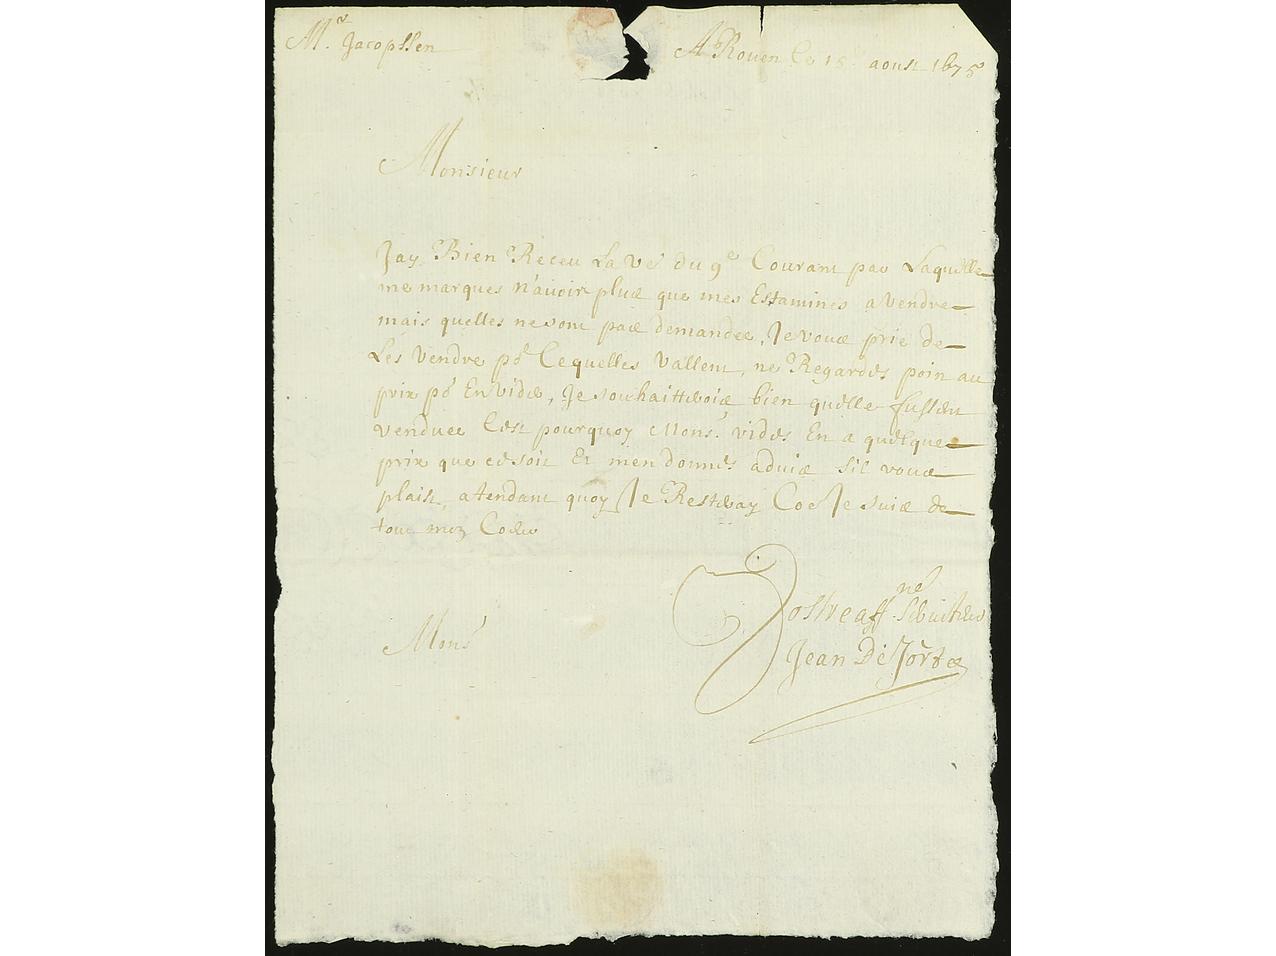 Mr. Jacopssen
A Rouen le 15 aoust 1675
Monsieur
Jay Bien Receu La vre du 9e Courant par Laquelle
me marques n'auoir plus que mes Estamines a vendre
mais quelles ne sont pas demandee, Je vous prie de
Les vendre pr Cequelles vallent, ne Regardes poin au
prix pr En vider, Je souhaitterois bien quelle fussent
vendues Cest pourquoy Monsr vides En a quelque
prix que ce soit Et men donnes aduis sil vous
plaist, atendant quoy Je Resteray Coe Je suis de
tout mon Coeur
Monsr
Vostre affne Seruiteur
Jean De